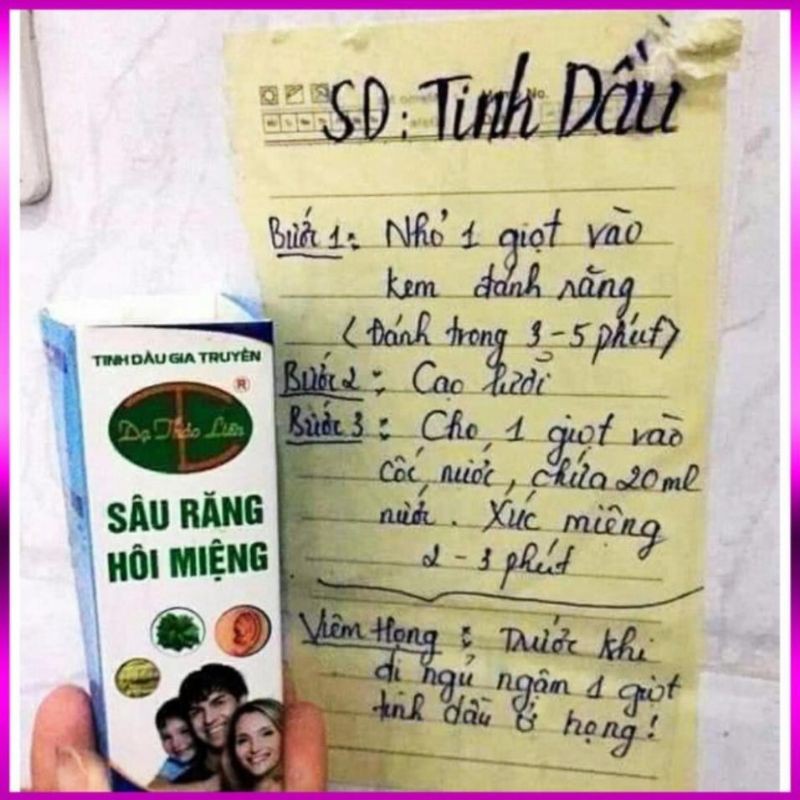 SD: Tinh Dầu
No.
Bước 1: Nhỏ 1 giọt vào
kem đánh răng
(Đánh trong 3-5 phút)
Bước 2: Cạo lưỡi
Bước 3: Cho 1 giọt vào
cốc nước, chứa 20ml
nước. Xúc miệng
2-3 phút
Viêm Họng: Trước khi
đi ngủ ngậm 1 giọt
tinh dầu ở họng!
TINH DẦU GIA TRUYỀN
®
Dạ Thảo Liên
SÂU RĂNG
HÔI MIỆNG